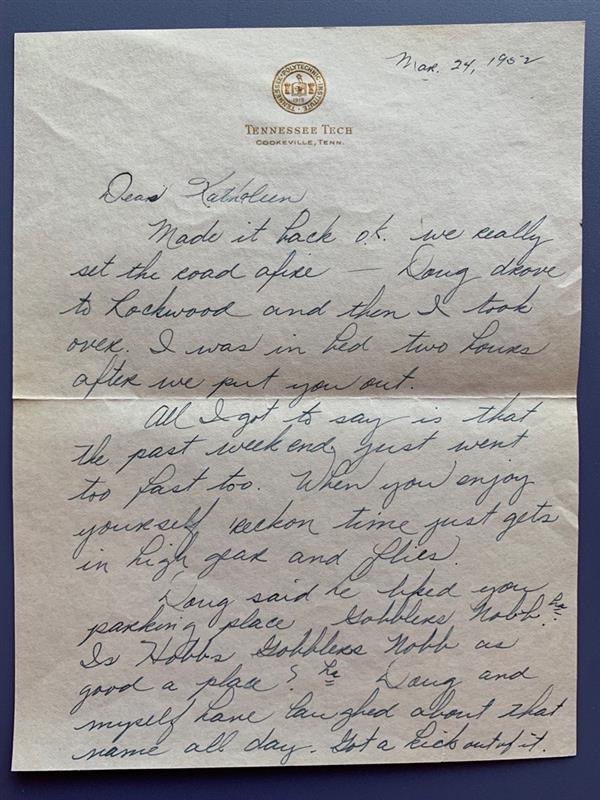 Mar. 24, 1952
TENNESSEE POLYTECHNIC INSTITUTE
1915
TENNESSEE TECH
COOKEVILLE, TENN.
Dear Kathleen
Made it back o.k. we really
set the road afire — Doug drove
to Rockwood and then I took
over. I was in bed two hours
after we put you out.
All I got to say is that
the past weekend, just went
too fast too. When you enjoy
yourself reckon time just gets
in high gear and flies.
Doug said he liked you
parking place Gobblers Nobb. ha
Is Hobbs Gobblers Nobb as
good a place? ha Doug and
myself have laughed about that
name all day. Got a kick out of it.